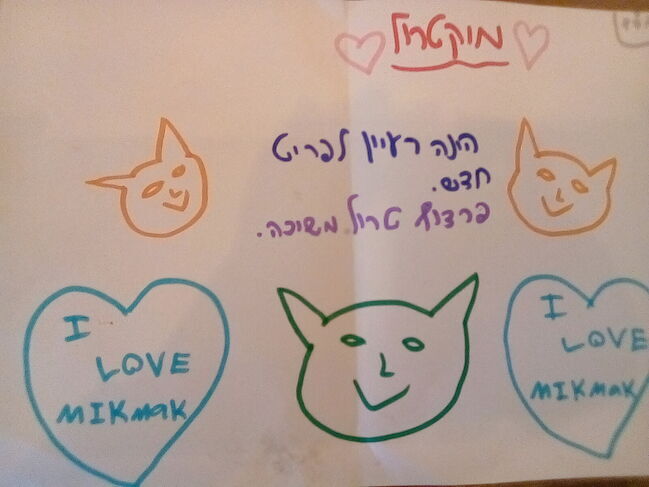 מיקטרול
הינה רעיין לפריט
חדש.
פרצוף טרול משיכה.
I
LOVE
MIKmaK
I
LOVE
MIKmaK